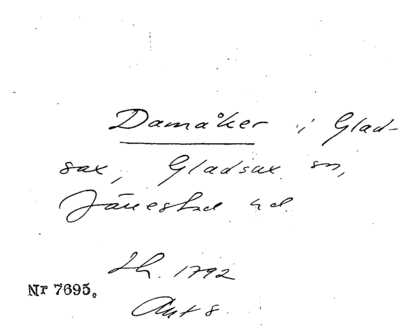 Damåker i Glad-
sax, Gladsax sn,
Järrestad hd.
Lh. 1792
Akt 8.
Nr 7695.